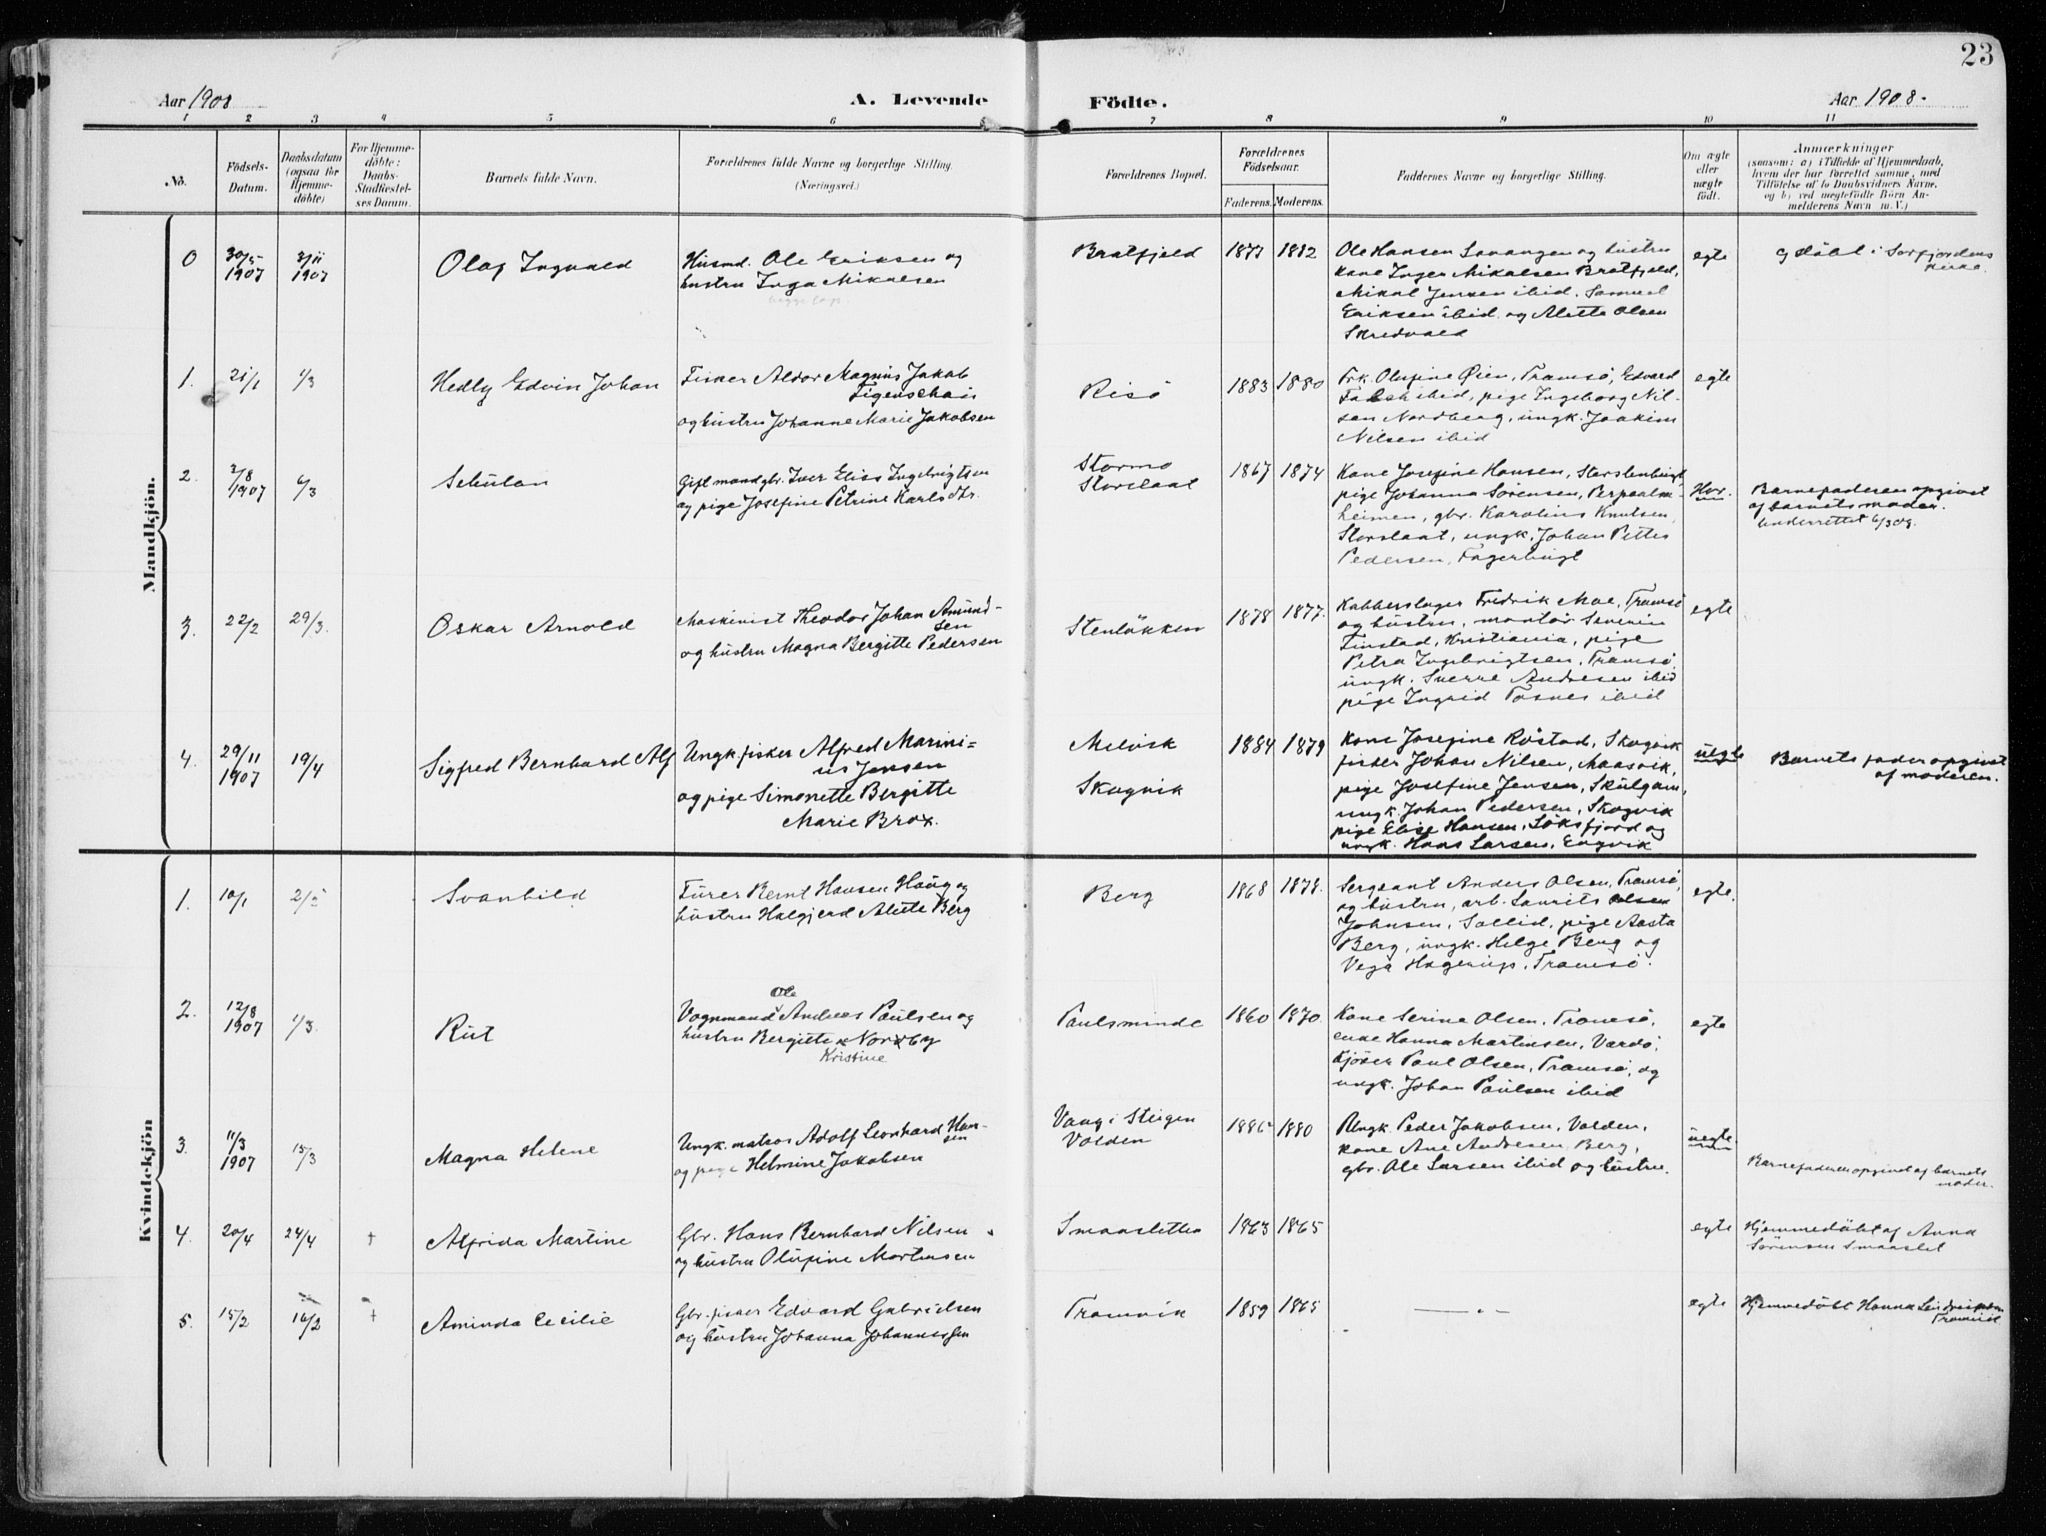 23
Aar 1908
A. Levende
Födte.
Aar 1908.
1 2 3 4 5 6 7 8 9 10 11
No.
Födsels-Datum.
Daabsdatum (ogsaa for Hjemme-döbte)
For Hjemme-döbte: Daabs-Stadfæstel-ses Datum.
Barnets fulde Navn.
Forældrenes fulde Navne og borgerlige Stilling.
(Næringsvei.)
Forældrenes Bopæl.
Forældrenes Födselsaar.
Faderens. Moderens.
Faddernes Navne og borgerlige Stilling.
Om ægte eller uægte födt.
Anmærkninger
(saasom: a) i Tilfælde af Hjemmedaab,
hvem der har forrettet samme, med
Tilföielse af to Daabsvidners Navne.
og b) ved uægtefödte Börn An-
melderens Navn m. V.)
Mandkjön.
0 30/5 1907 3/11 1907 Olaf Ingvald
Husmd. Ole Eriksen og
hustru Inga Mikalsen
Bratfjeld 1877 1882
Ole Hansen Lavangen og hustru
kane Inger Mikalsen Bratfjeld,
Mikal Jensen ibid. Samuel
Eriksen ibid. og Alette Olsen
Skredvald
egte
døbt i Sørfjordens
kirke.
1. 21/1 1/3 Hedly Edvin Johan
Fisker Aldor Magnus Jakob
Figenschau
og hustru Johanne Marie Jakobsen
Risø 1883 1880
Frk. Olufine Øien, Tromsø, Edvard
Falsk ibid, pige Ingeborg Nil-
sen Nordberg, ungk. Joakim
Nilsen ibid
egte
2. 2/8 1907 6/3
Gift mand gbr. Iver Elias Ingebrigtsen
og pige Josefine Petrine Karlsdtr.
Stormo
Storslaat 1867 1874
Kone Josefine Hansen, Storstenbugt,
pige Johanna Sørensen,
heimen, gbr. Karolius Knutsen,
Storslaat, ungk. Johan Petter
Pedersen, Fagerbugt
Hor.
Barnefaderen opgivet
af barnets moder.
Underrettet 6/3 09.
3. 22/2 29/3. Oskar Arnold
Maskinist Theodor Johan Amund-
sen
og hustru Magna Bergitte Pedersen
Stenløkken 1878 1877.
Kobberslager Fredrik Moe, Tromsø
og hustru, montør Severin
Finstad, Kristiania, pige
Petra Ingebrigtsen, Tromsø,
ungk. Sverre Andresen ibid
pige Ingrid Fosnes ibid
egte
4. 29/11 1907 19/4 Sigfred Bernhard Alf
Ungk. fisker Alfred Marini=
us Jensen
og pige Simonette Bergitte
Marie Brox.
Melvik
Skogvik 1884 1879
Kone Josefine Røstad, Skogvik
fisker Johan Nilsen, Maasvik,
pige Josefine Jensen, Skulgam,
ungk. Johan Pedersen, Skogvik
pige Elise Hansen, Løksfjord og
ungk. Hans Larsen, Engvik
uegte
Barnets fader opgivet
af moderen.
Kvindekjön
1. 10/1 2/2 Svanhild
Furer Bernt Hansen Haug og
hustru Halgjerd Alette Berg
Berg 1868 1878.
Sergeant Anders Olsen, Tromsø,
og hustru, arb. Laurits Olsen
Johnsen, Sollid, pige Aasta
Berg, ungk. Helge Berg og
Vega Hagerup, Tromsø.
egte.
2. 12/8 1907 1/3. Rut
Ole
Vognmand Andreas Paulsen og
hustru Bergitte Norby
Kristine
Paulsminde 1860 1870.
Kone Serine Olsen, Tromsø,
enke Hanna Martinsen, Vardø,
Kjøbm Paul Olsen, Tromsø, og
ungk. Johan Paulsen ibid
egte
3. 11/3 1907 15/3 Magna Helene
Ungk. matros Adolf Leonhard Han-
sen
og pige Helmine Jakobsen
Vaag i Steigen
Volden 1886 1880
Ungk. Peder Jakobsen, Volden,
kone Ane Andresen, Berg,
gbr. Ole Larsen ibid og hustru.
uegte
Barnefaderen opgivet af barnets
moder.
4. 20/4 24/4 † Alfrida Martine
Gbr. Hans Bernhard Nilsen
og hustru Olufine Mortensen
Smaasletten 1863 1865
egte
Hjemmedøbt af Anna
Sørensen Smaaslet
5. 15/2 16/2 † Aminda Cecilie
Gbr. fisker Edvard Gabrielsen
og hustru Johanna Johannessen
Tromvik 1859 1865
— „ —
egte
Hjemmedøbt Hanna
Tromvik